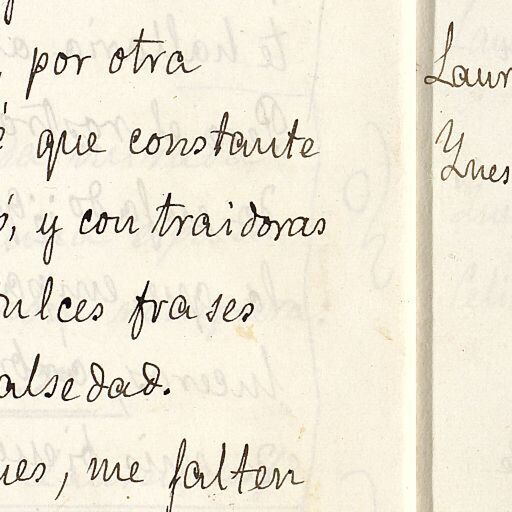 por otra
que constante
, y con traidoras
ulces frases
alsedad.
ues, me falten
Laur
Ynes